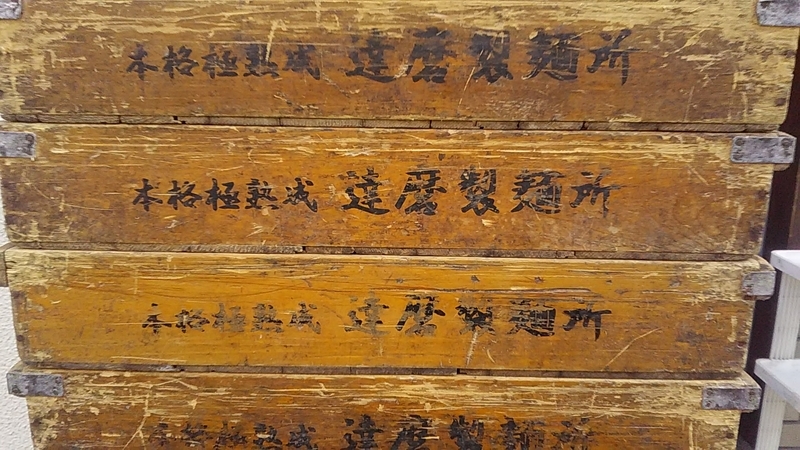 本格極熟成 達磨製麺所
本格極熟成 達磨製麺所
本格極熟成 達磨製麺所
本格極熟成 達磨製麺所